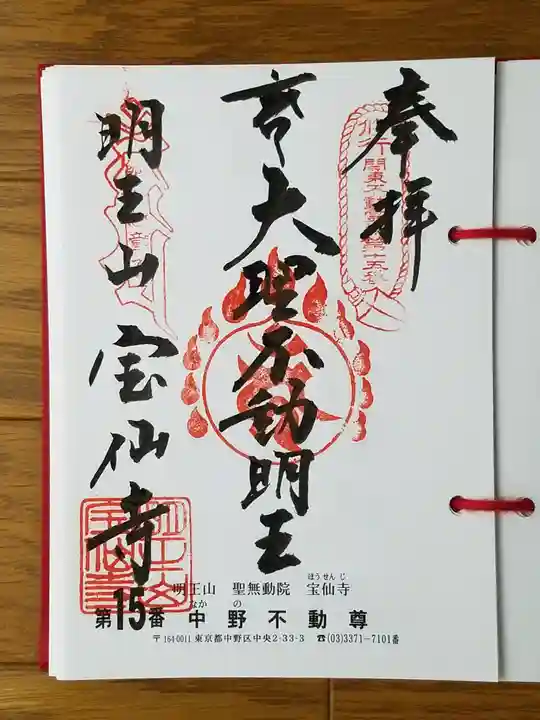 奉拝
大聖不動明王
明王山
宝仙寺
関東不動霊場第十五番
明王山 聖無動院 宝仙寺
ほうせんじ
第15番 中野不動尊
なかの
〒164-0011 東京都中野区中央2-33-3 ☎(03)3371-7101番